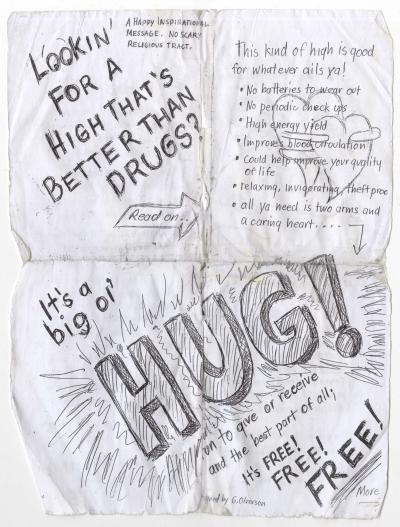 A HAPPY INSPIRATIONAL
MESSAGE. NO SCARY
RELIGIOUS TRACT.
LOOKIN'
FOR A
HIGH THAT'S
BETTER THAN
DRUGS?
Read on..
This kind of high is good
for whatever ails ya!
• No batteries to wear out
• No periodic check ups
• High energy yield
• Improves blood circulation
• Could help improve your quality
of life
• relaxing, invigorating, theft proo
• all ya need is two arms and
a caring heart.....
It's a
big ol'
HUG!
to give or receive
and the best part of all;
It's FREE!
FREE!
FREE!
by G.
More